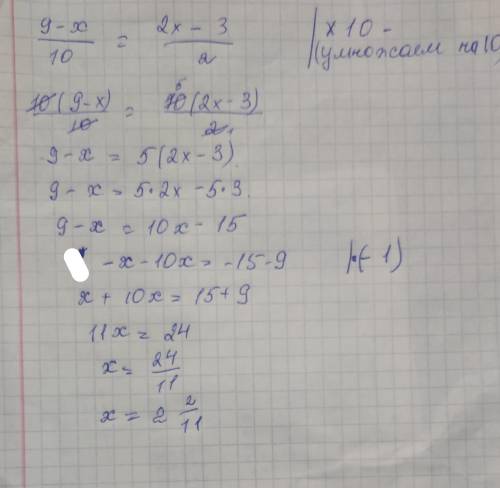 (9-x)/10 = (2x-3)/2 | x 10 -
(умножаем на 10
10(9-x)/10 = 10(2x-3)/2 5 1
9-x = 5(2x-3)
9-x = 5·2x-5·3.
9-x = 10x-15
-x-10x = -15-9 |·(-1)
x+10x = 15+9
11x = 24
x = 24/11
x = 2 2/11